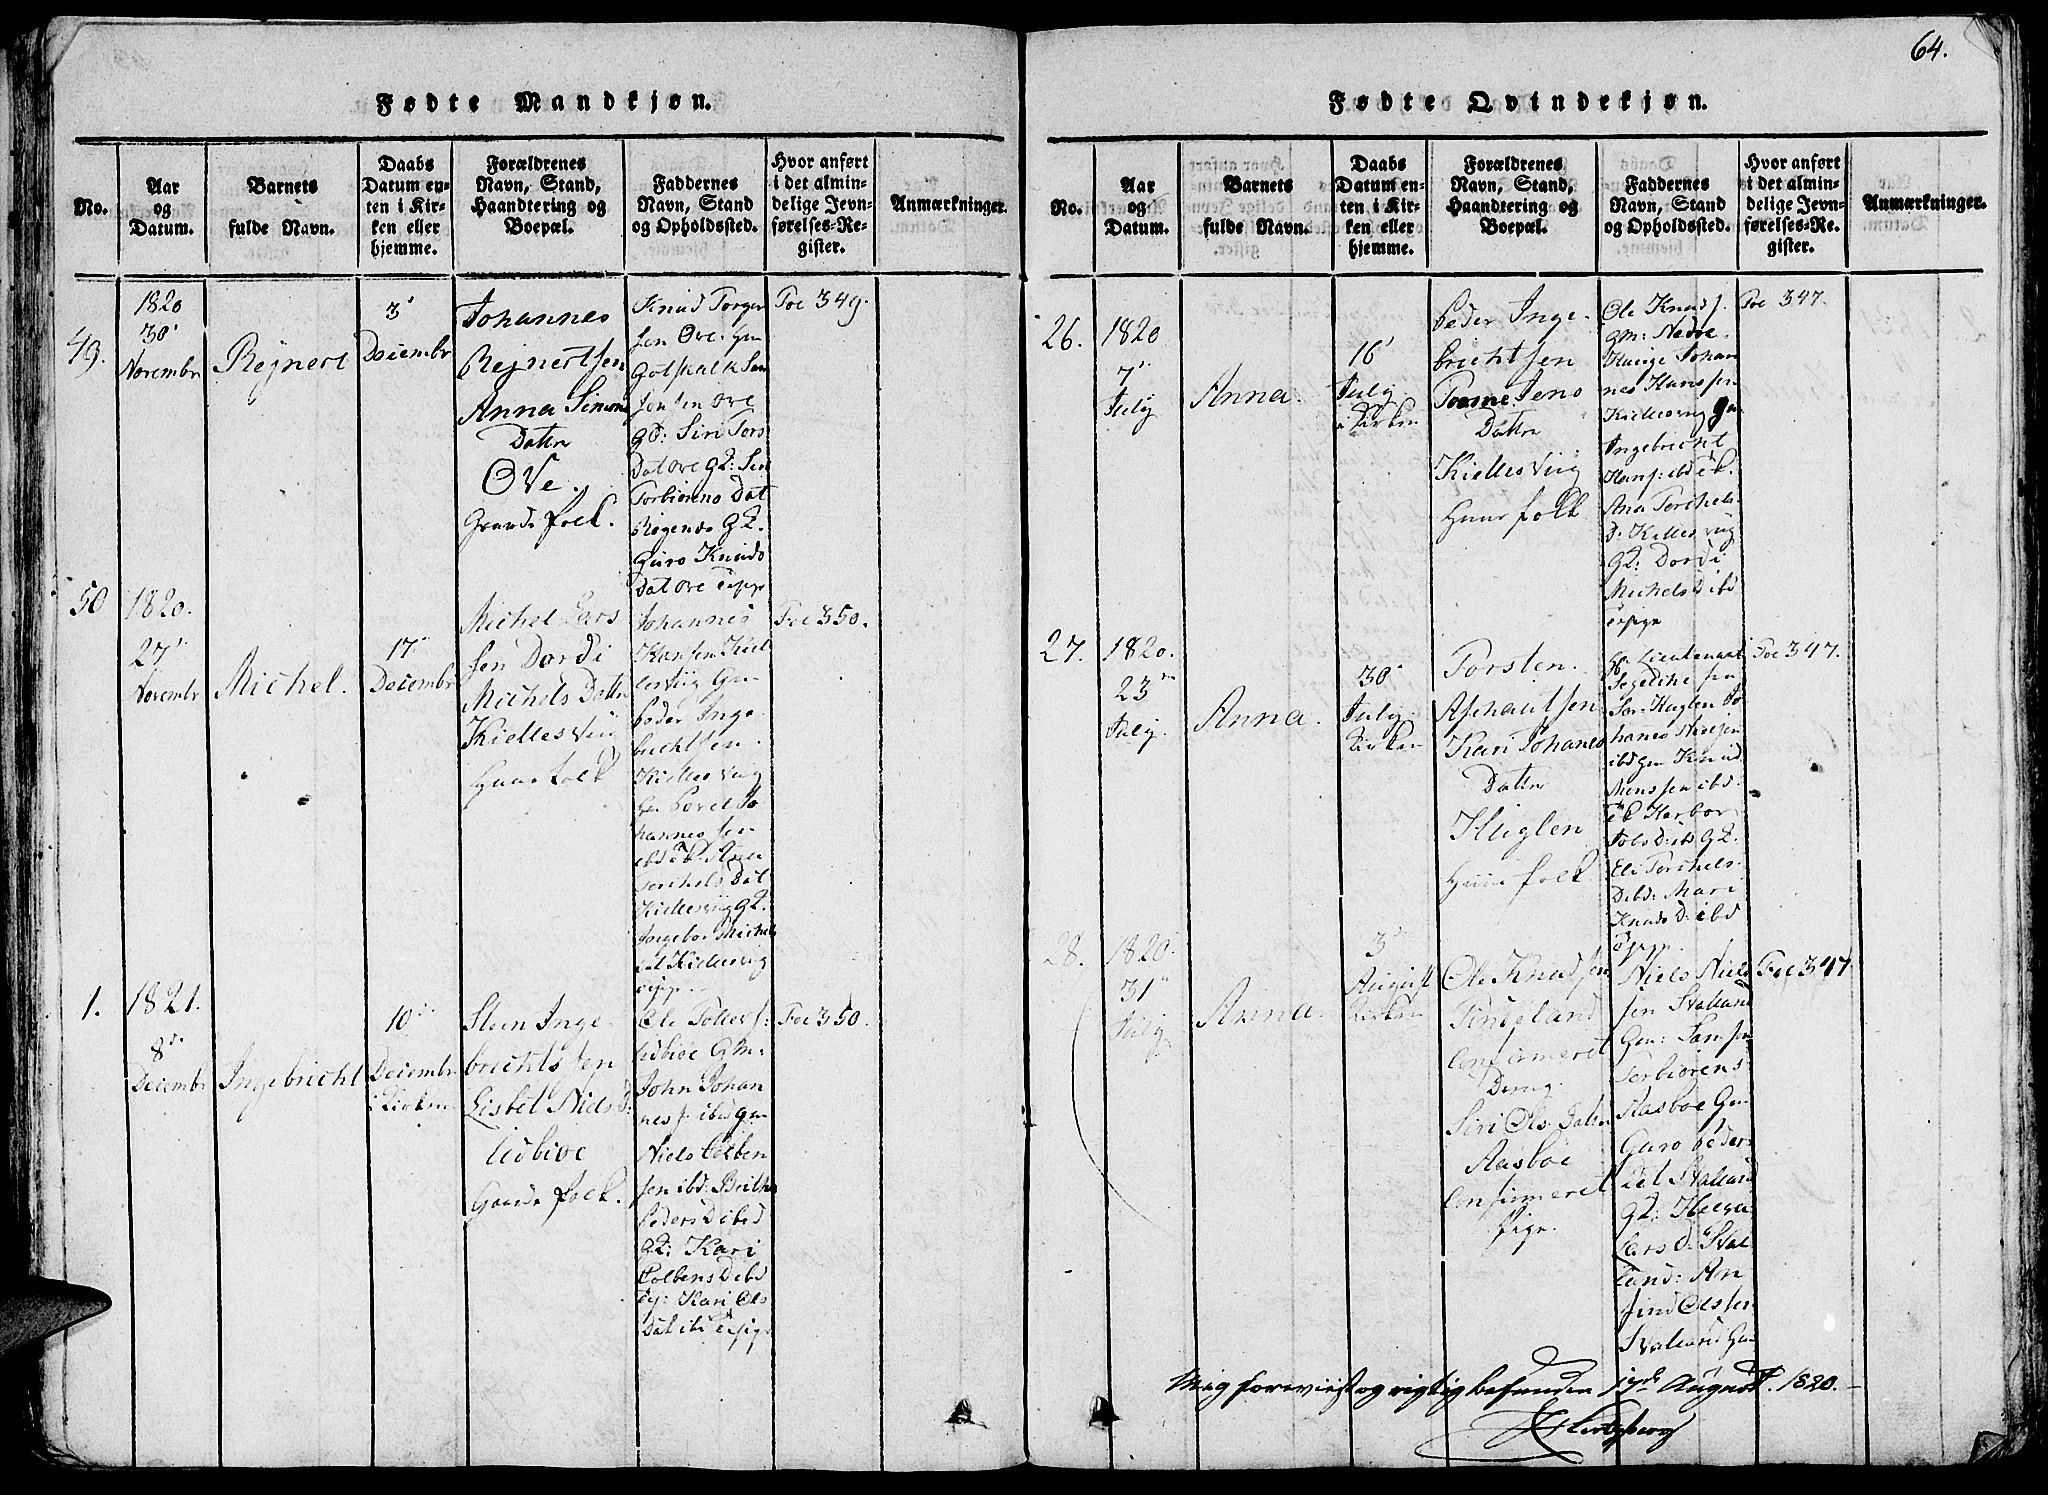 64.
Fødte Mandkjøn.
No.
Aar
og
Datum.
Barnets
fulde Navn.
Daabs
Datum en-
ten i Kir-
ken eller
hjemme.
Forældrenes
Navn, Stand,
Haandtering og
Boepæl.
Faddernes
Navn, Stand
og Opholdssted.
Hvor anført
i det almin-
delige Jevn-
førelses-Re-
gister.
Anmærkninger.
49.
1820
30
Novembr
Rejnert
3
Decembr
Johannes
Rejnertsen
Anna Simons
Dattr
Ove.
Gaards folk.
Knud Torger
sen Ove. Gm
Gotskalk Sam
sonsen Ove
GD: Siri Tors
Dat Ove GD: Siri
Torbiørns Dat
Røgenes GD.
Guro Knuds
Dat Ove
Foe 349.
50
1820.
27
Novembr
Michel.
17
Decembr
Michel Lars
sen Dordi
Michels Dattr
Kiellesviig
Huusfolk
Johannes
Hansen Kiel
lesviig Gm
Peder Inge
brichtsen
Kiellesviig
Gm Povel Jo
hannessen
ibd
Torchels Dat
Kiellesviig GD.
Ingebor Michels
Dat Kiellesviig
Foe 350.
1.
1821.
8de
Decembr
Ingebricht
10de
Decembr
i Kirken
Steen Inge
brichtsen
Lisbet Niels D:
Udbiøe
Gaards folk.
Ole Tollefs:
Udbiøe Gm:
John Johan
nes s. ibd gm
Niels Colben
sen ibd: Britha
Peders D ibd
GD: Kari
Colbens D ibd
Kari Ols
Dat ibd
Foe 350.
Fødte Qvindekjøn.
No.
Aar
og
Datum.
Barnets
fulde Navn.
Daabs
Datum en-
ten i Kir-
ken eller
hjemme.
Forældrenes
Navn, Stand,
Haandtering og
Boepæl.
Faddernes
Navn, Stand
og Opholdssted.
Hvor anført
i det almin-
delige Jevn-
førelses-Re-
gister.
Anmærkninger.
26.
1820
7
July
Anna.
16
July
i Kirken
Peder Inge-
brichtsen
Jens
Dattr
Kiellesviig
Huusfolk
Ole Knuds.
gm: Nedre
Huige Johan
nes Hanssen
Kiellesviig gm
Ingebricht
Hans s: ibd
Ana Torchels
D: Kiellesviig
GD: Dordi
Michels D ibd
Foe 347.
27.
1820.
23
July.
Anna.
30
July
Kirken
Torsten
Asphautsen
Kari Johanes
Dattr
Huglen
Huusfolk
Hr Lieutenant
Huglen Jo
hanes
ibd gm Knud
Monssen ibd.
Jobs D: ibd GD.
Eli Torchels.
D ibd: Mari
Knuds D: ibd
Foe 347.
28.
1820
31
July
Anna.
3
August
Kirken
Ole Knudsen
Tindeland
Confirmeret
Dreng.
Siri Ols Dattr
Aasboe
Confirmeret
Pige.
Niels Niels
sen Stalland
Gm: Samson
Torbiørens
Aasboe Gm
Guro Peders
Dat Stalland
GD: Helga
Lars D: Stal
land: Arn
find Olssen
Stalland Gm
Foe 347
Mig foreviist og rigtig befunden 17de August. 1820.